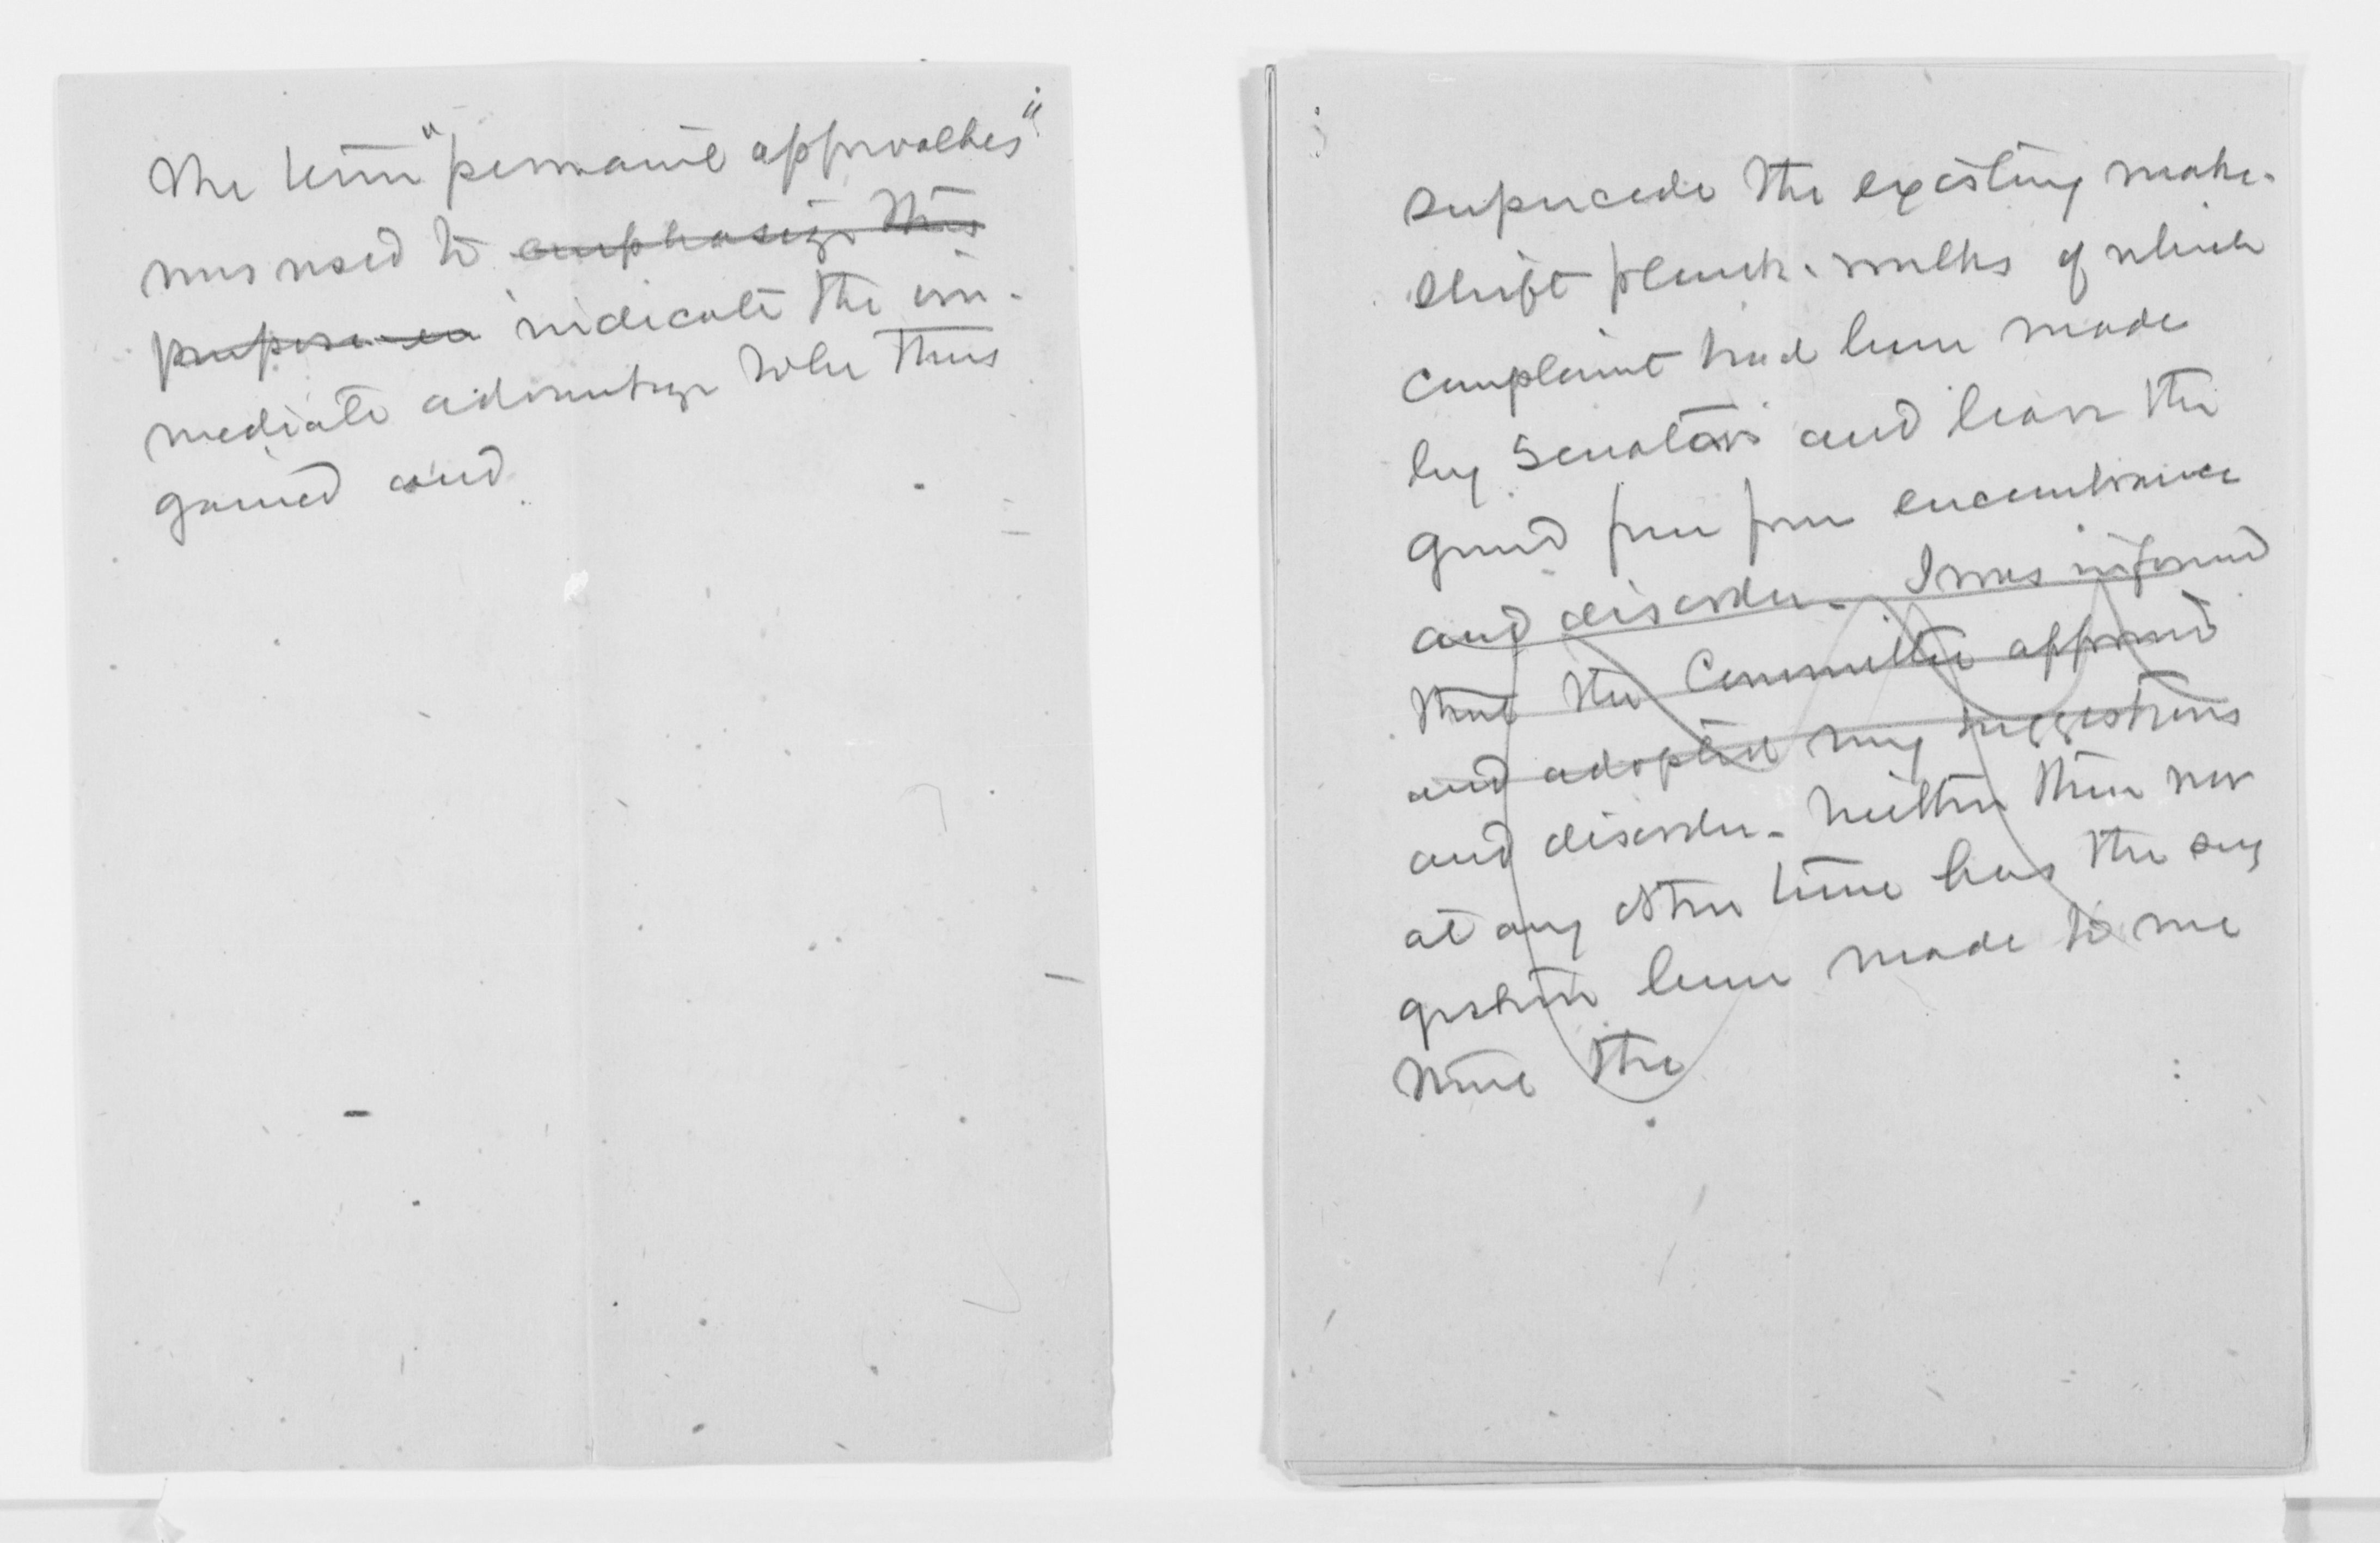 The term "permanent approaches"
was used to emphasize this
purpose in indicate the im-
mediate advantage to be thus
gained and
supercede the existing make-
shift plank-walks of which
complaint had been made
by Senators and leave the
ground free from encumbrance
and disorder. I was informed
that the Committee approved
and adopted my suggestions
and disorder. Neither then nor
at any other time has the sug
gestion been made to me
the